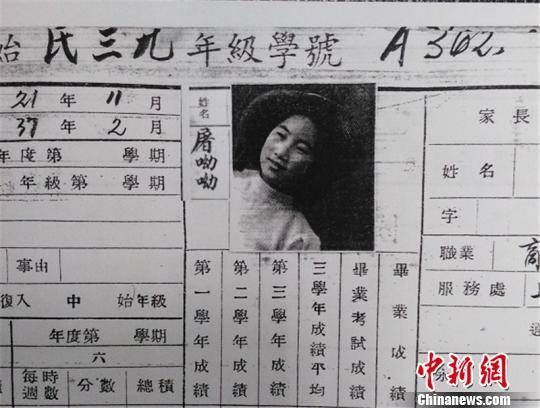 始 民三九 年級學號 A 302
21 年 11 月
37 年 2 月
年度第 學期
年級第 學期
事由
復入 中 始年級
年度第 學期
六
每週時數 分數 總積
姓名
屠呦呦
第一學年成績
第二學年成績
第三學年成績
三學年成績平均
畢業考試成績
畢業成績
家長
姓名
字
職業 商
服務處 上
中新网
Chinanews.com